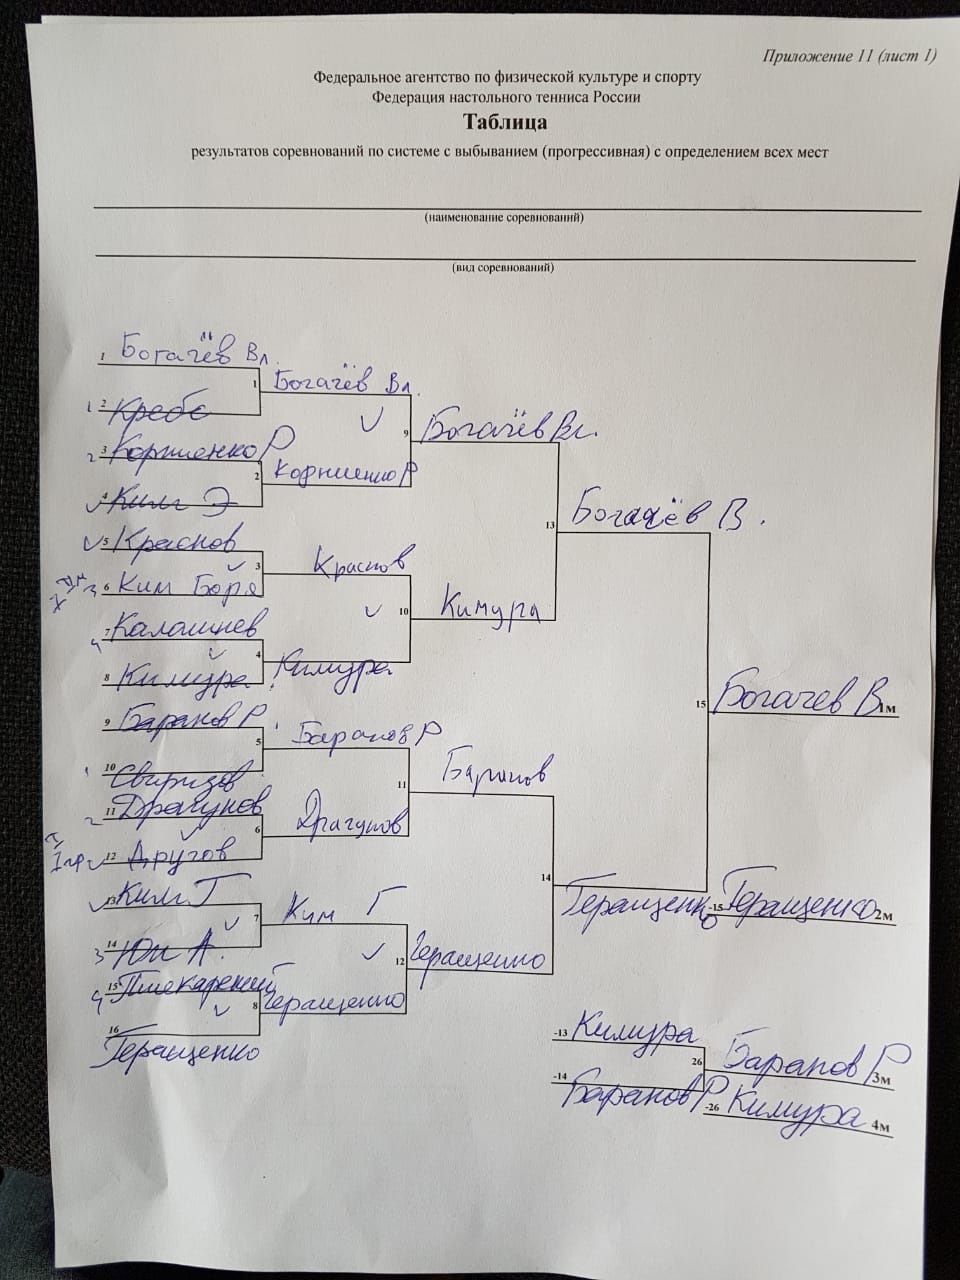 Приложение 11 (лист 1)
Федеральное агентство по физической культуре и спорту
Федерация настольного тенниса России
Таблица
результатов соревнований по системе с выбыванием (прогрессивная) с определением всех мест
(наименование соревнований)
(вид соревнований)
1 Богачёв Вл.
1 Богачёв Вл.
1 2 Кребс
9 Богачёв Вл.
2 3 Корниенко Р
2 Корниенко Р
4 Ким Э
13 Богачёв В.
5 Краснов
3 Краснов
3 6 Ким Боря
10 Кимура
4 7 Калашнев
4 Кимура
8 Кимура
15 Богачев В 1м
9 Баранов Р
5 Баранов Р
1 10 Свиридов
11 Баранов
2 11 Драгунов
6 Драгунов
12 Другов
14 Геращенко
-15 Геращенко 2м
13 Ким Г
7 Ким Г
3 14 Юн А.
12 Геращенко
4 15
8 Геращенко
16 Геращенко
-13 Кимура
26 Баранов Р 3м
-14 Баранов Р
-26 Кимура 4м